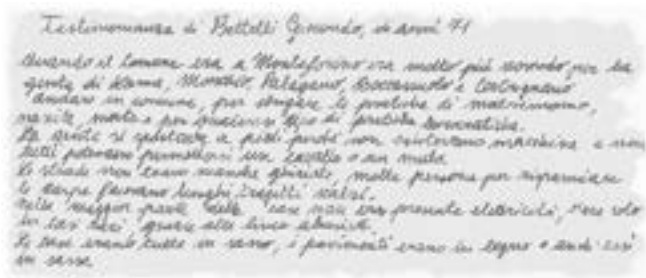 Testimonianza di Bettelli Gimondo, di anni 71
Quando il Comune era a Montefiorino era molto più scomodo per la
gente di Rama, Monchio, Palagano, Boccassuolo e Costrignano
andare in comune, per sbrigare le pratiche di matrimonio,
nascita, morte e per qualsiasi tipo di pratiche
La gente si spostava a piedi perché non esistevano macchine e non
tutti potevano permettersi un cavallo o un mulo.
Le strade non erano neanche ghiaiate, molte persone per risparmiare
le scarpe facevano lunghi tragitti scalzi.
Nella maggior parte delle case non era presente elettricità, c'era solo
in casi rari, grazie alle
Le case erano tutte in sasso, i pavimenti erano in legno o anche essi
in sasso